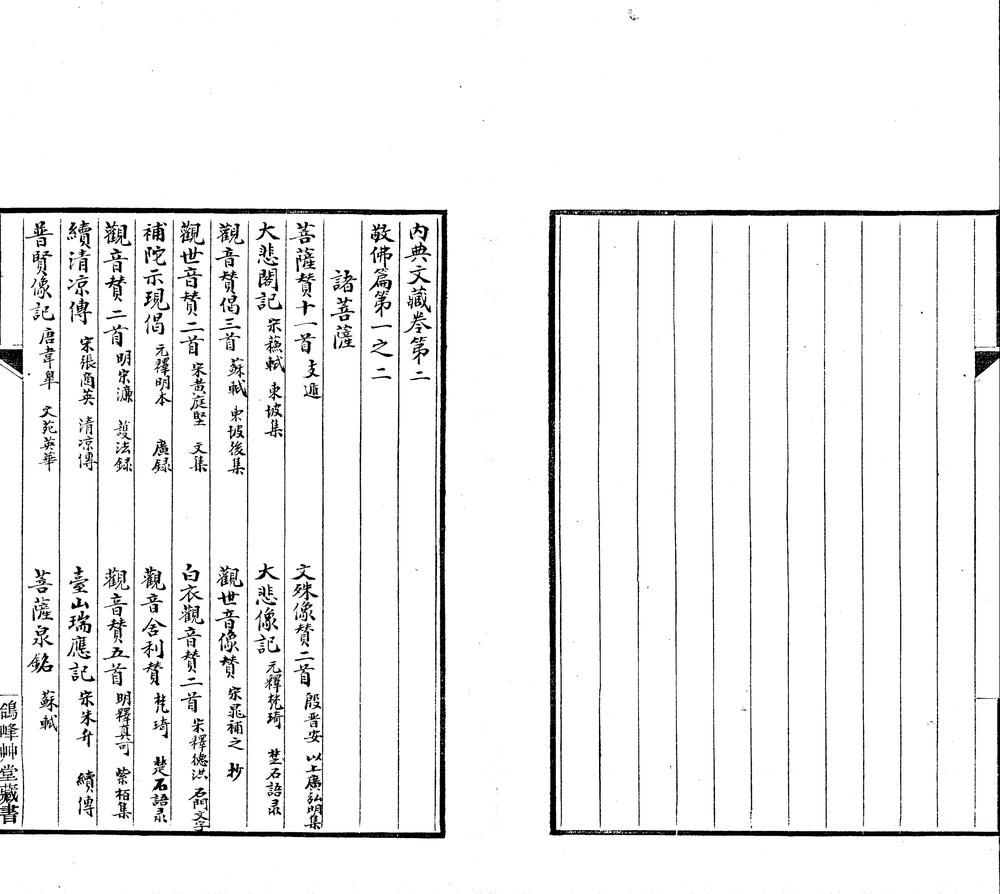 內典文藏卷第二
敬佛篇第一之二
諸菩薩
菩薩賛十一首 支遁
文殊像賛二首 殷晉安 以上廣弘明集
大悲閣記 宋蘇軾 東坡集
大悲像記 元釋梵琦 楚石語录
觀音賛偈三首 蘇軾 東坡後集
觀世音像賛 宋晁補之 抄
觀世音賛二首 宋黄庭堅 文集
白衣觀音賛二首 宋釋德洪 石門文字
補陀示現偈 元釋明本 廣録
觀音舍利賛 梵琦 楚石語录
觀音賛二首 明宋濂 護法録
觀音賛五首 明釋真可 紫柏集
續清凉傳 宋張商英 清凉傳
臺山瑞應記 宋朱弁 續傳
普賢像記 唐韋皐 文苑英華
菩薩泉銘 蘇軾
鴿峰艸堂藏書